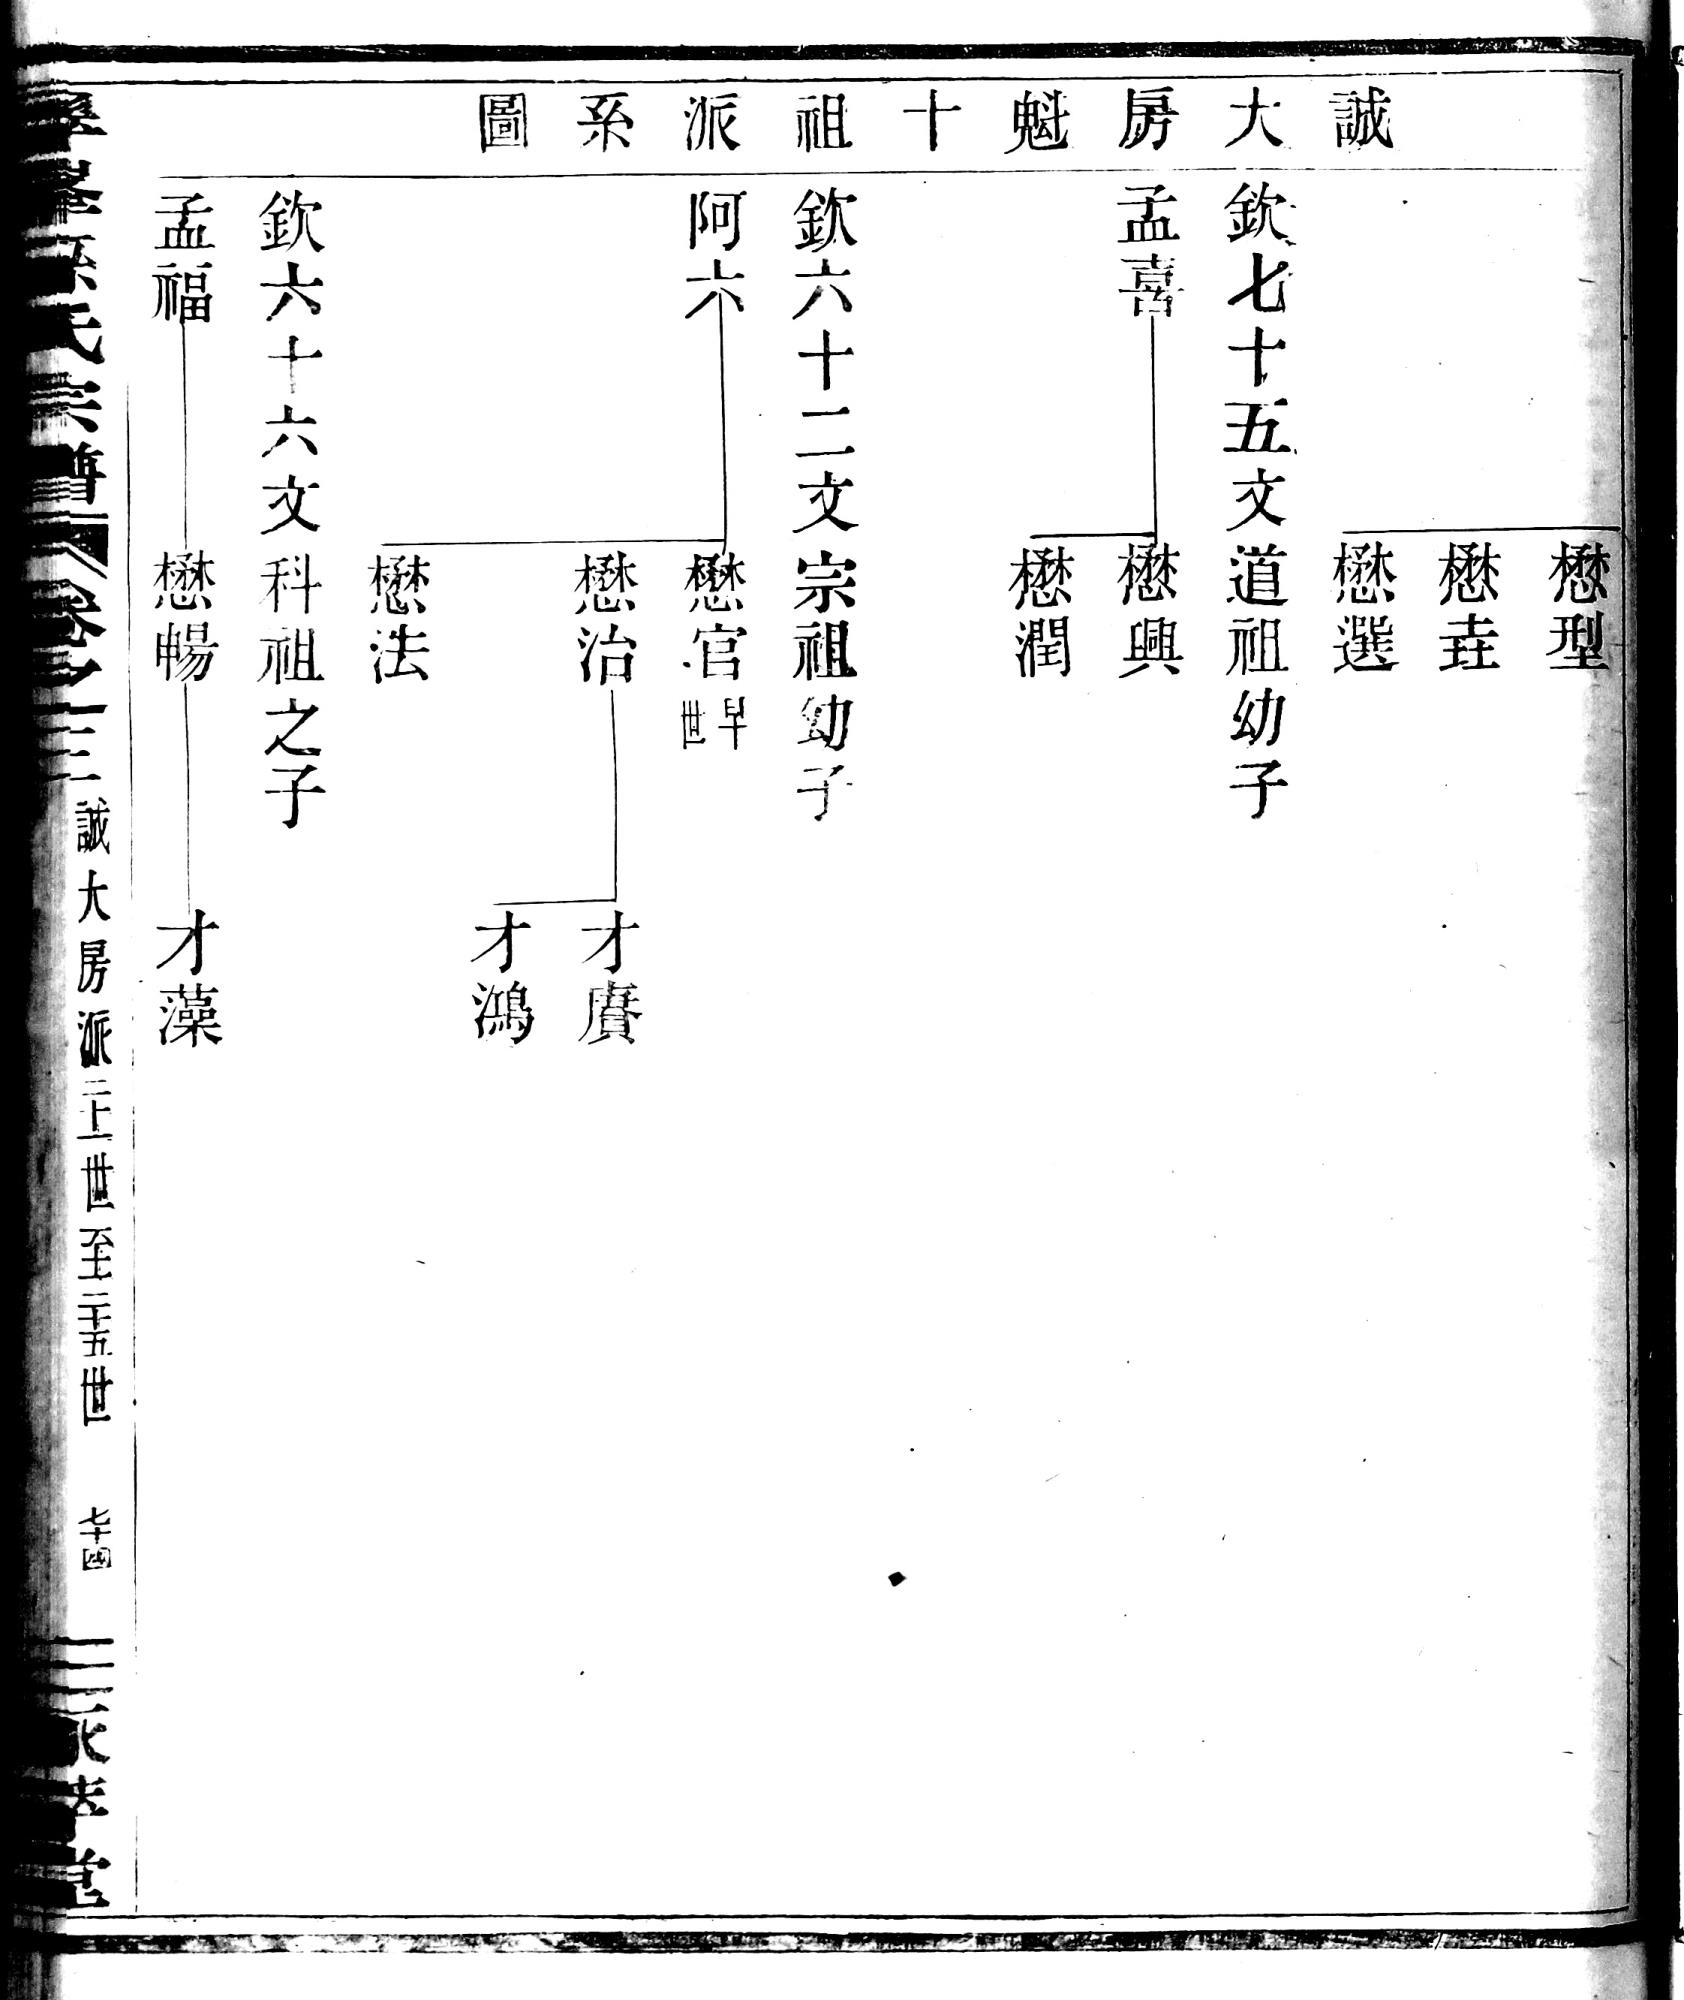 誠大房魁十祖派系圖
懋型
懋垚
懋選
欽七十五文道祖幼子
孟喜
懋興
懋潤
欽六十二文宗祖幼子
阿六
懋官早世
懋治
才賡
才鴻
懋法
欽六十六文科祖之子
孟福
懋暢
才藻
氏宗譜 卷之
誠大房派二十一世至二十五世 七十四
堂